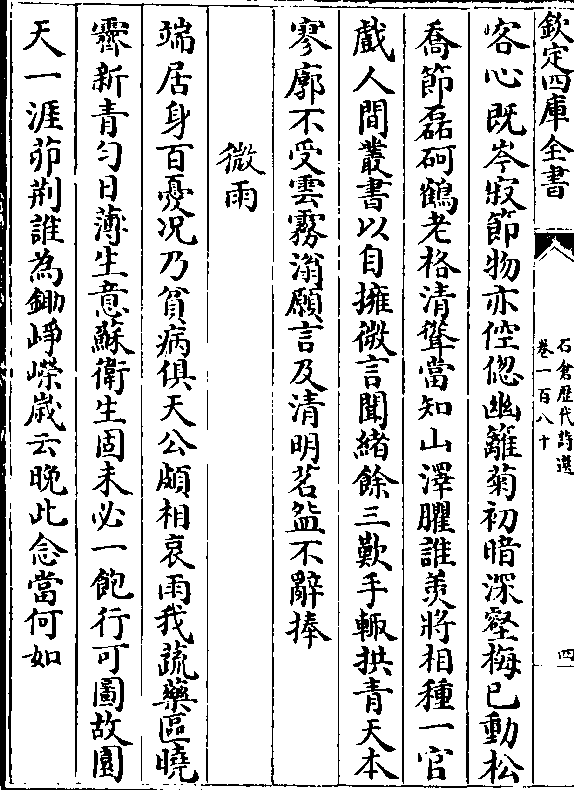 欽定四庫全書
石倉歷代詩選
卷一百八十
四
客心既岑寂節物亦倥偬幽籬菊初暗深壑梅已動松
喬節磊砢鶴老格清聳當知山澤臞誰羨將相種一官
戲人間叢書以自擁微言聞緒餘三歎手輙拱青天本
寥廓不受雲霧滃願言及清明茗盌不辭捧
微雨
端居身百憂况乃貧病俱天公頗相哀雨我蔬藥區曉
霽新青勻日薄生意蘇衛生固未必一飽行可圖故園
天一涯茆荆誰為鋤崢嶸歳云晚此念當何如